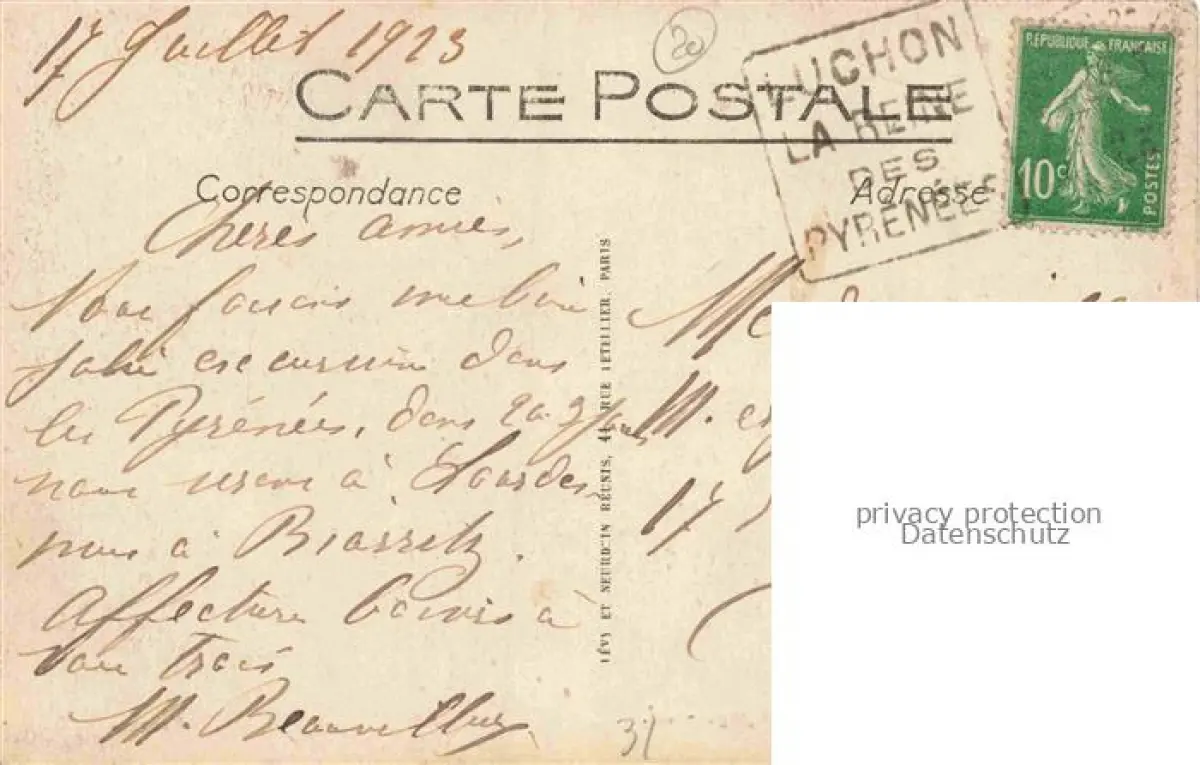 17 Juillet 1923
20
CARTE POSTALE
LUCHON
LA REINE
DES
PYRÉNÉES
RÉPUBLIQUE FRANÇAISE
10c
POSTES
Correspondance
Adresse
Chères amies,
Nous faisons une bien
jolie excursion dans
les Pyrénées, dans 2 à 3 jours
nous serons à Lourdes
puis à Biarritz.
Affectueux baisers à
vous trois
M.
LÉVY ET NEURDEIN RÉUNIS, 44 RUE LETELLIER, PARIS
M.
17
31
privacy protection
Datenschutz